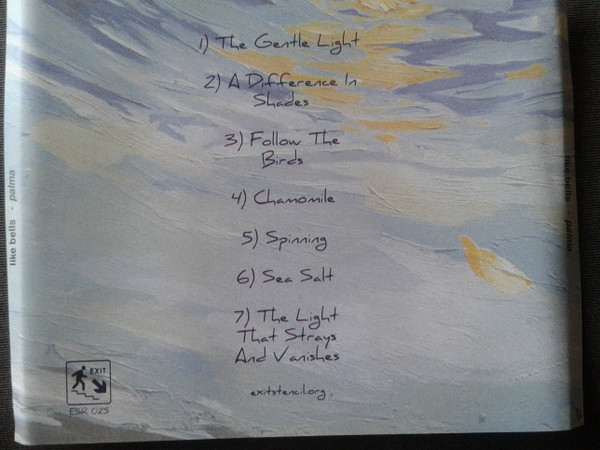 1) The Gentle Light
2) A Difference In
Shades
3) Follow The
Birds
4) Chamomile
5) Spinning
6) Sea Salt
7) The Light
That Strays
And Vanishes
exitstencil.org
EXIT
ESR 025
like bells - palma
like bells palma